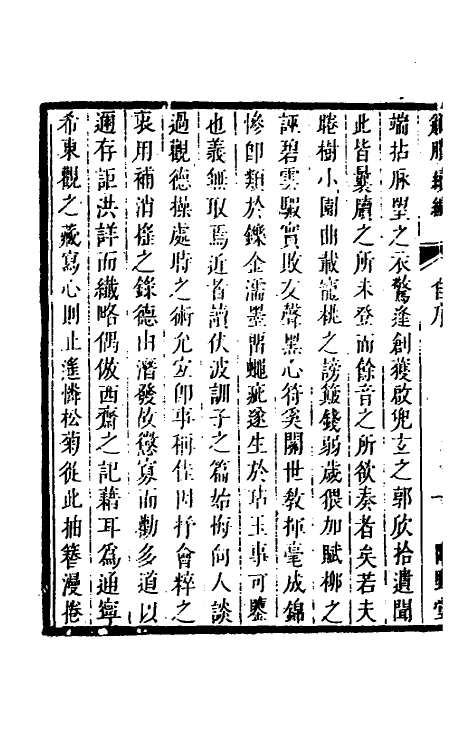 觚賸續編　自序
端拈脉望之衣驚逢創獲啟兜玄之郭欣拾遺聞
此皆曩牘之所未登而餘音之所欲奏者矣若夫
睠樹小園曲載寵桃之謗簸錢弱歲猥加賦柳之
誣碧雲騢實敗友聲墨心符奚關世敎揮毫成錦
慘卽類於鑠金濡墨而蠅疵遂生於玷玉事可鑒
也義無取焉近者讀伏波訓子之篇始悔向人談
過觀德操處時之術尤宜卽事稱佳因抒會粹之
衷用補消搖之錄德由潛發故懲寡而勸多道以
邇存詎洪詳而纖略偶倣西齋之記藉耳為通寧
希東觀之藏寫心則止遙憐松菊從此抽簪漫捲